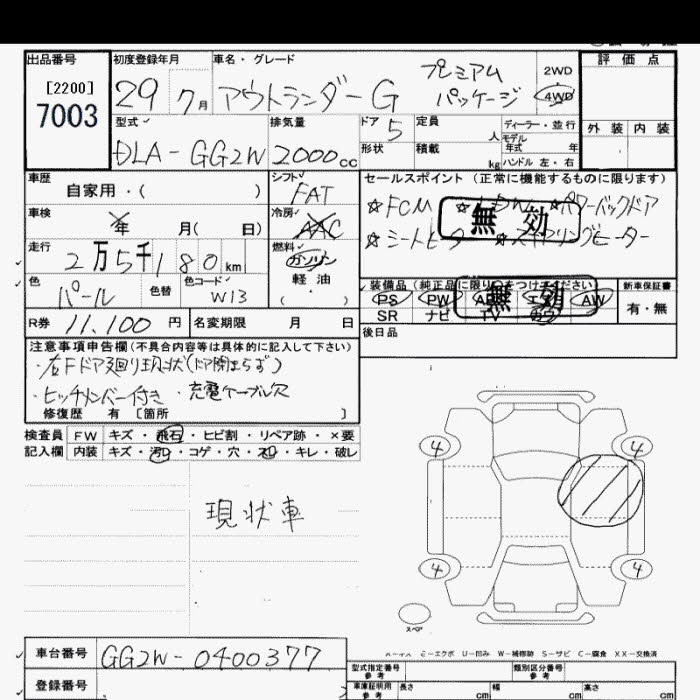 出品番号 初度登録年月 車名・グレード 評価点
[2200]
7003
29 7月 アウトランダー G プレミアム パッケージ 2WD 4WD
型式 排気量 ドア 定員 人 ディーラー・並行
外装 内装
DLA-GG2W 2000cc 5 形状 積載 kg モデル年式 年 ハンドル 左・右
車歴 自家用・( ) シフト FAT セールスポイント (正常に機能するものに限ります)
車検 年 月( 日) 冷房 AAC ☆FCM ☆ ☆パワーバックドア
無効
走行 2万5千180km 燃料 ガソリン ☆シートヒーター
色 パール 色替 色コード W13 軽油 ( )
装備品 (純正品に限り つけて ください) 新車保証書
無効
PS PW AW 有・無
SR ナビ TV
R券 11,100円 名変期限 月 日 後日品
注意事項申告欄(不具合内容等は具体的に記入して下さい)
・右Fドア廻り現状(ドア閉まらず)
・ヒッチメンバー付き ・充電ケーブル欠
修復歴 有 [箇所 ]
検査員 FW キズ・飛石・ヒビ割・リペア跡・×要
記入欄 内装 キズ・汚れ・コゲ・穴・スレ・キレ・破レ
現状車
4 4
4 4
スペア
U-凹み W-補修跡 S-サビ C-腐食 XX-交換済
車台番号 GG2W-0400377
登録番号
型式指定番号 参考 類別区分番号 参考
車庫証明用 参考 長さ cm 幅 cm 高さ cm